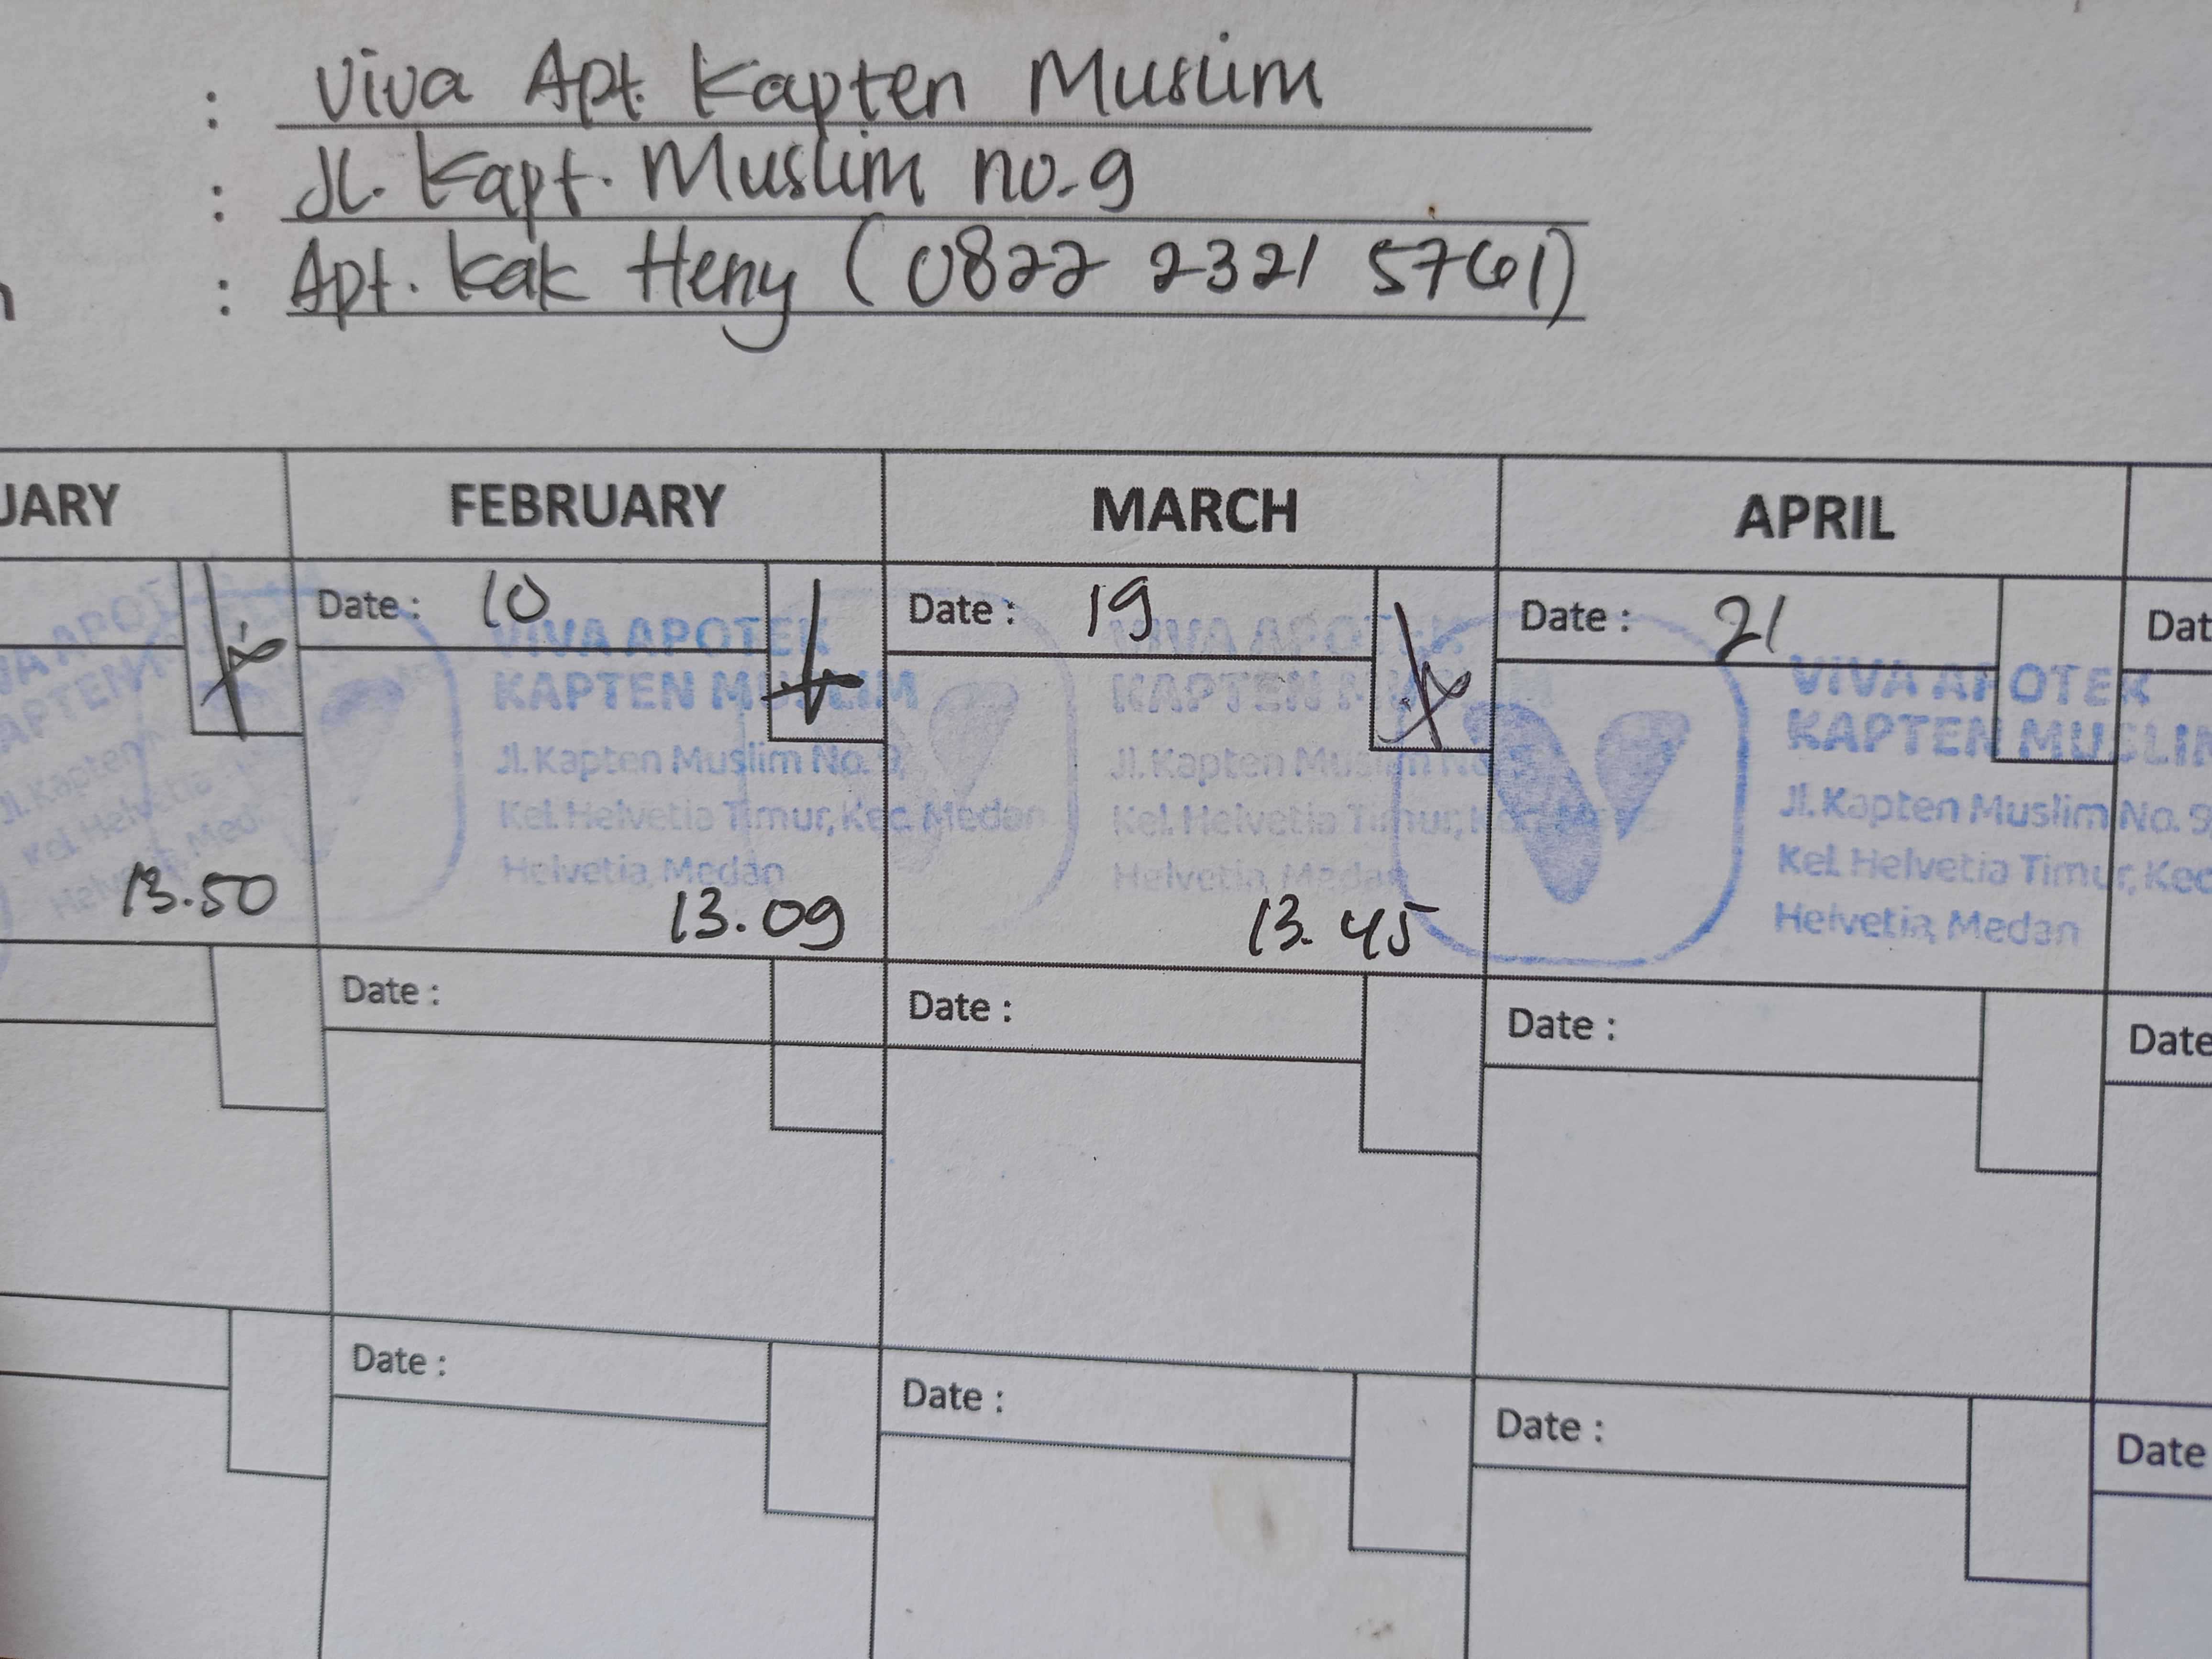 : Viva Apt. Kapten Muslim
: Jl. Kapt. Muslim no. 9
: Apt. Kak Heny (0822 2321 5761)
UARY FEBRUARY MARCH APRIL
Date : 10 Date : 19 Date : 21 Dat
VIVA APOTEK
KAPTEN MUSLIM
Jl. Kapten Muslim No. 9,
Kel. Helvetia Timur, Kec. Medan
Helvetia, Medan
VIVA APOTEK
KAPTEN MUSLIM
Jl. Kapten Muslim No. 9,
Kel. Helvetia Timur, Kec. Medan
Helvetia, Medan
VIVA APOTEK
KAPTEN MUSLIM
Jl. Kapten Muslim No. 9
Kel. Helvetia Timur, Kec
Helvetia, Medan
13.50 13.09 13.45
Date : Date : Date : Date
Date : Date : Date : Date